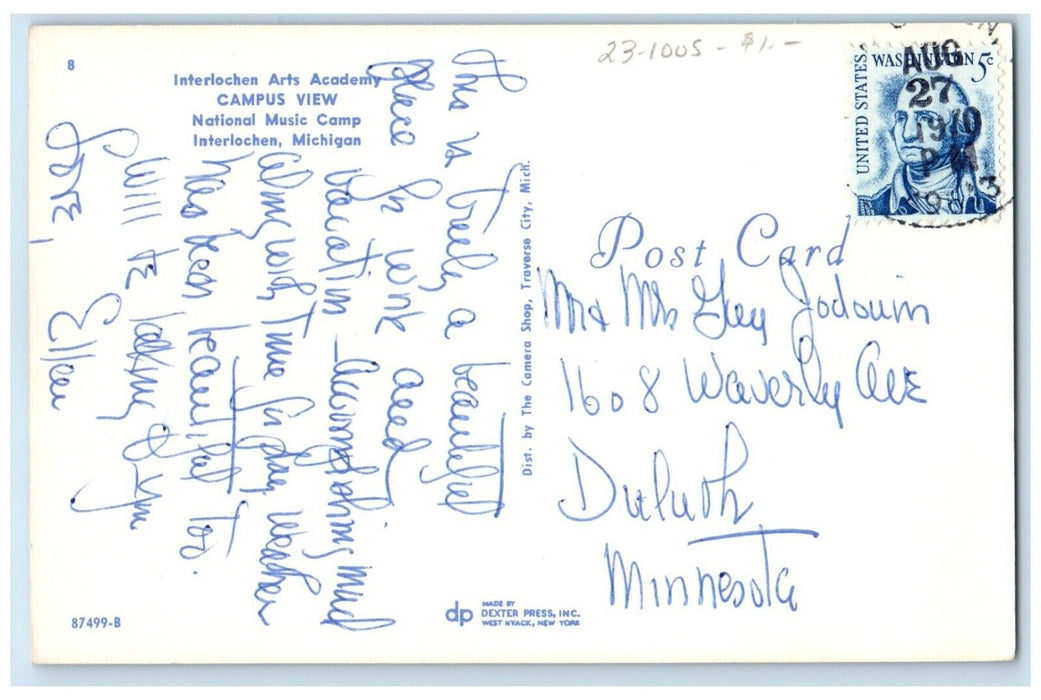 23-1005 - $1.-
8
Interlochen Arts Academy
CAMPUS VIEW
National Music Camp
Interlochen, Michigan
This is truly a beautiful
place for work and
vacation - accomplishing much
along with time for play. Weather
has been beautiful too.
Will be seeing you
Love, Ellen
Dist. by The Camera Shop, Traverse City, Mich.
UNITED STATES
WASHINGTON 5c
AUG
27
1970
PM
498
Post Card
Mr & Mrs Guy Jodouin
1608 Waverly Ave
Duluth
Minnesota
87499-B
dp
MADE BY
DEXTER PRESS, INC.
WEST NYACK, NEW YORK